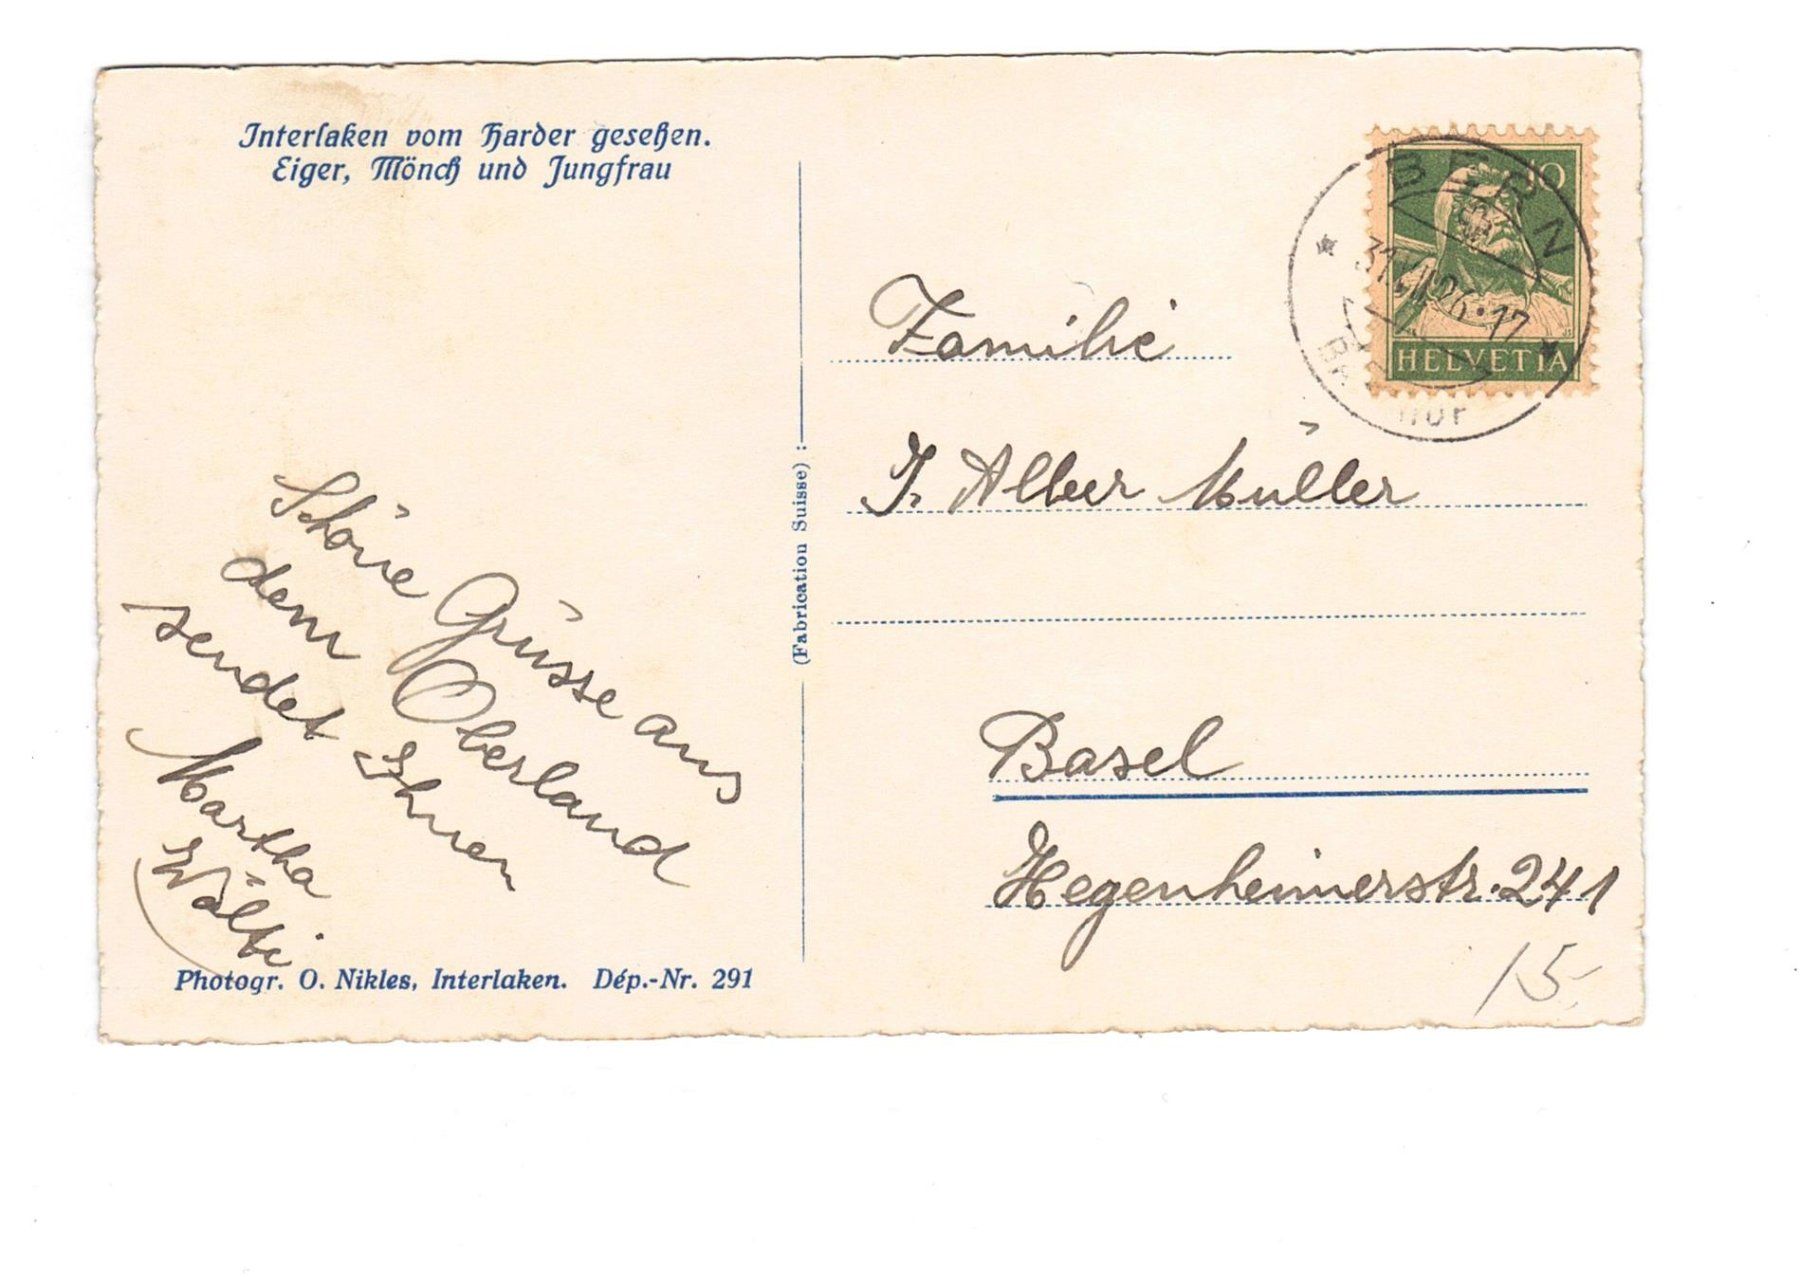 Interlaken vom Harder gesehen.
Eiger, Mönch und Jungfrau
Schöne Grüsse aus
dem Oberland
sendet Ihnen
Martha
Wälti
Photogr. O. Nikles, Interlaken. Dép.-Nr. 291
(Fabrication Suisse)
10
HELVETIA
BERN
31.VII.26.17
Familie
J. Alber Müller
Basel
Hegenheimerstr. 241
15.